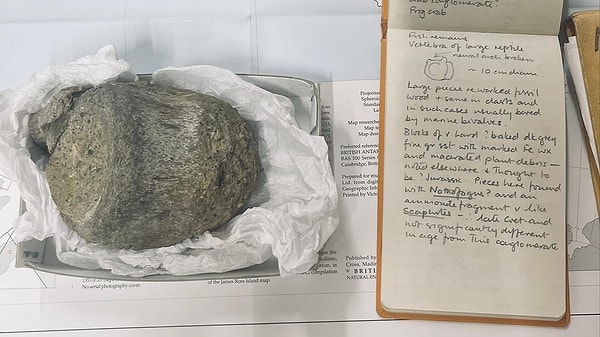 Crab conglomerate?
Frog crab
Fish remains
Vertebra of large reptile
neural arch broken
~ 10 cm diam
Large pieces reworked fossil
wood + some in clasts and
in such cases usually bored
by marine bivalves.
Blocks of v hard ? baked dk grey
fine gr sst with marked Fe wx
and macerated plant debris –
noted elsewhere & thought to
be ? Jurassic. Pieces here found
with Nothofagus? and an
ammonite fragment v. like
Scaphites – ∴ late Cret and
not significantly different
in age from this conglomerate
Projection
Spheroid
Standard
Map researched
Preferred reference
BRITISH ANTAR
BAS 100 Series
Cambridge, Britis
Prepared for
Ltd. from digit
Geographic Infor
Printed by Victo
Published by
Cross, Madin
© BRITI
NATURAL EN
No aerial photography cover
of the James Ross Island map.